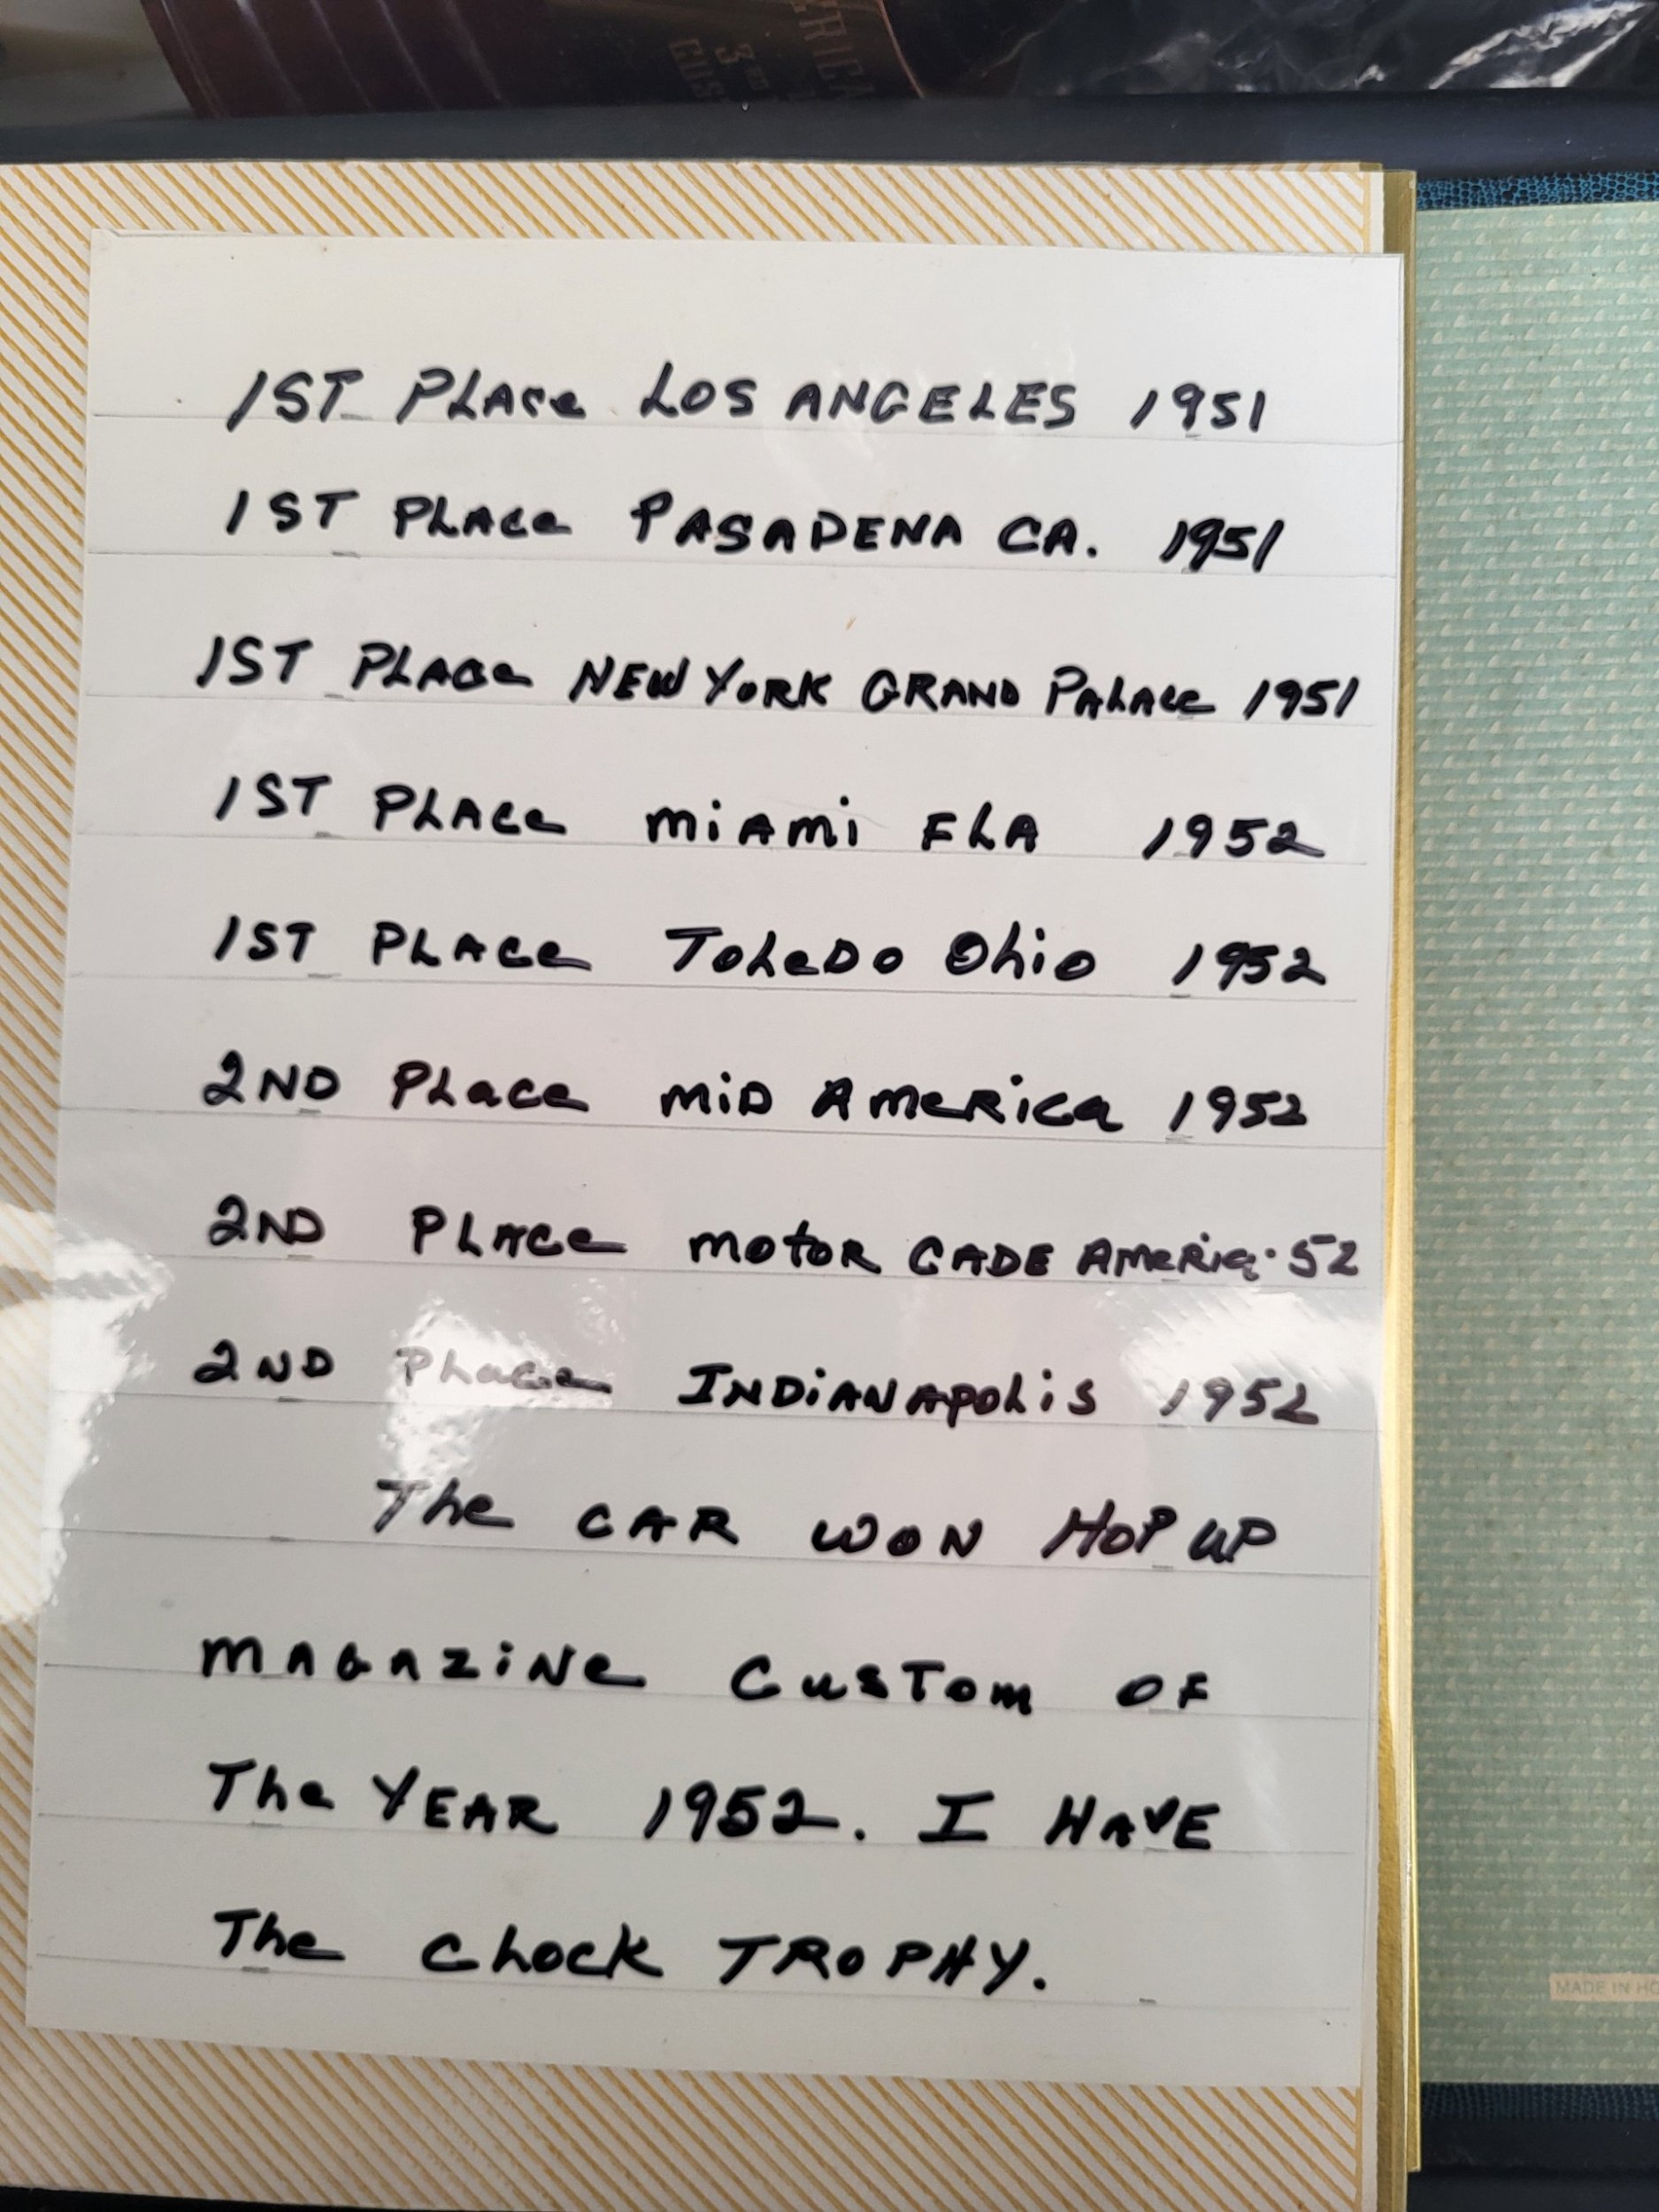 1ST PLAce LOS ANGELES 1951
1ST PLAce PASADENA CA. 1951
1ST PLAce NEW YORK GRAND PALAce 1951
1ST PLAce MiAMi FLA 1952
1ST PLAce ToLeDo Ohio 1952
2ND PLace MiD AMeRica 1952
2ND PLAce MotoR CADE AMeRica. 52
2ND PLace INDiANApoLis 1952
The CAR WON HOP UP
MAGAZiNe CusTom OF
The YEAR 1952. I HAVE
The cLock TROPHY.
MADE IN HO